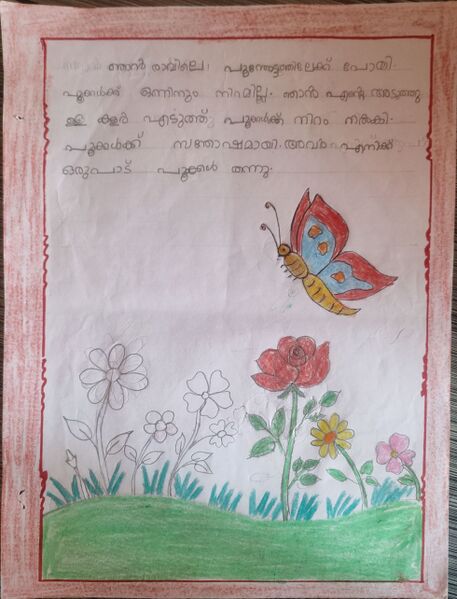 ഞാൻ രാവിലെ പൂന്തോട്ടത്തിലേക്ക് പോയി.
പൂക്കൾക്ക് ഒന്നിനും നിറമില്ല. ഞാൻ എന്റെ അടുത്തു
ള്ള കളർ എടുത്ത് പൂക്കൾക്ക് നിറം നൽകി.
പൂക്കൾക്ക് സന്തോഷമായി. അവർ എനിക്ക്
ഒരുപാട് പൂക്കൾ തന്നു.